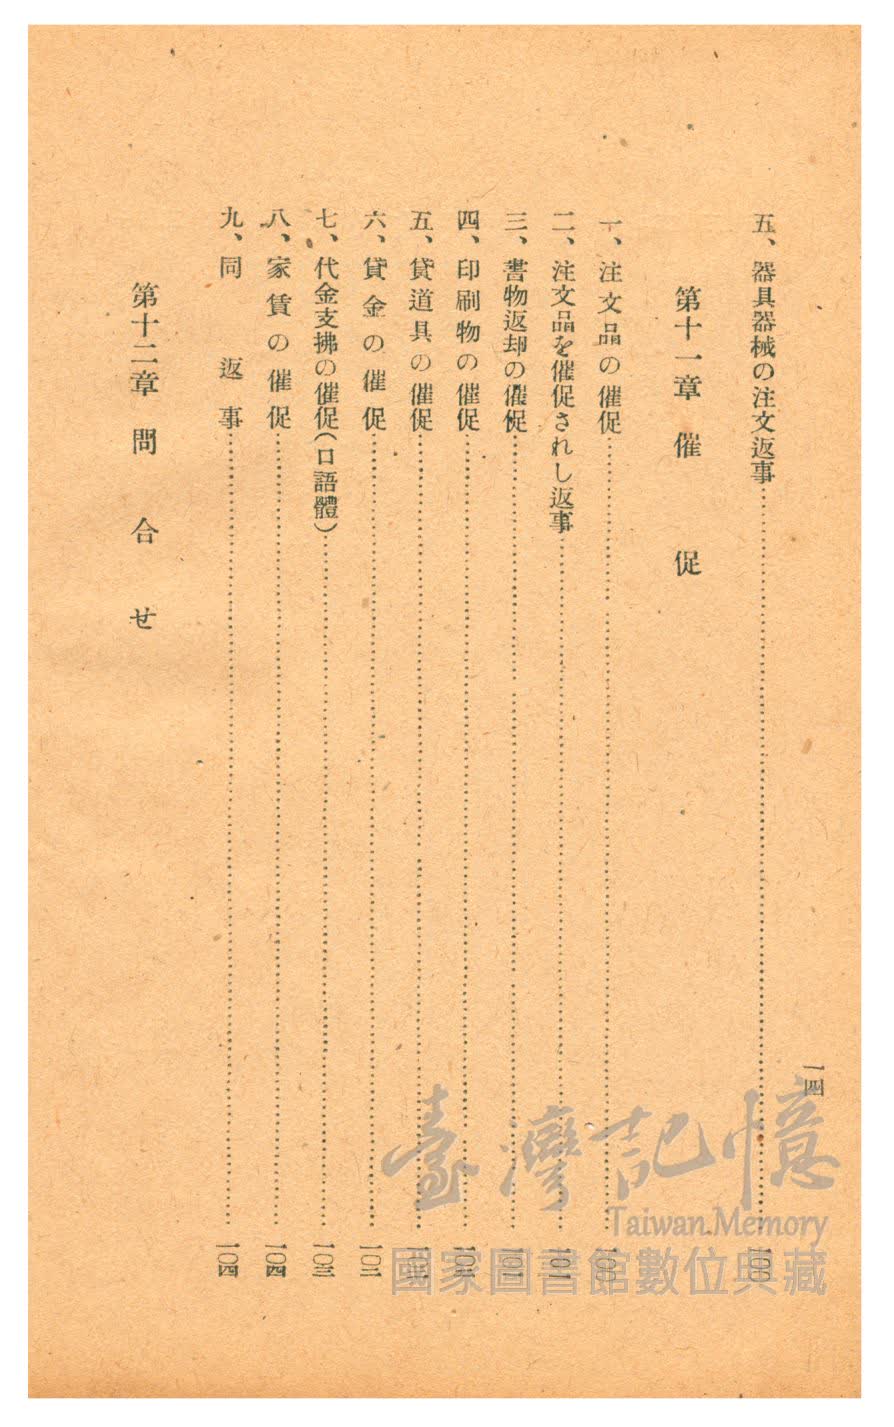 一四
五、器具器械の注文返事…………一〇〇
第十一章 催 促
一、注文品の催促…………一〇〇
二、注文品を催促されし返事…………一〇一
三、書物返却の催促…………一〇一
四、印刷物の催促…………一〇二
五、貸道具の催促…………
六、貸金の催促…………一〇二
七、代金支拂の催促(口語體)…………一〇三
八、家賃の催促…………一〇四
九、同 返事…………一〇四
第十二章 問 合 せ
臺灣記憶
Taiwan Memory
國家圖書館數位典藏